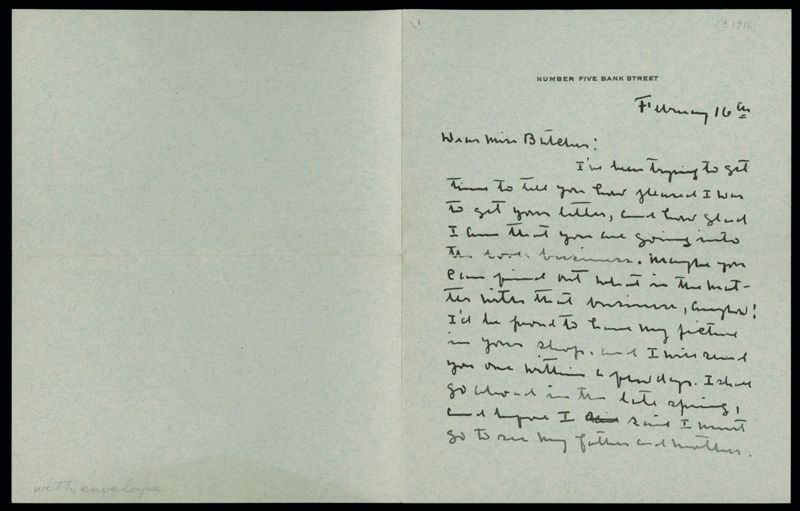 (c 1916)
NUMBER FIVE BANK STREET
February 16th
Dear Miss Butcher:
I've been trying to get
time to tell you how pleased I was
to get your letter, and how glad
I am that you are going into
the book business. Maybe you
can find out what is the mat-
ter with that business, anyhow!
I'd be proud to have my picture
in your shop, and I will send
you one within a few days. I shall
go abroad in the late spring,
and before I sail I must
go to see my father and mother.
with envelope